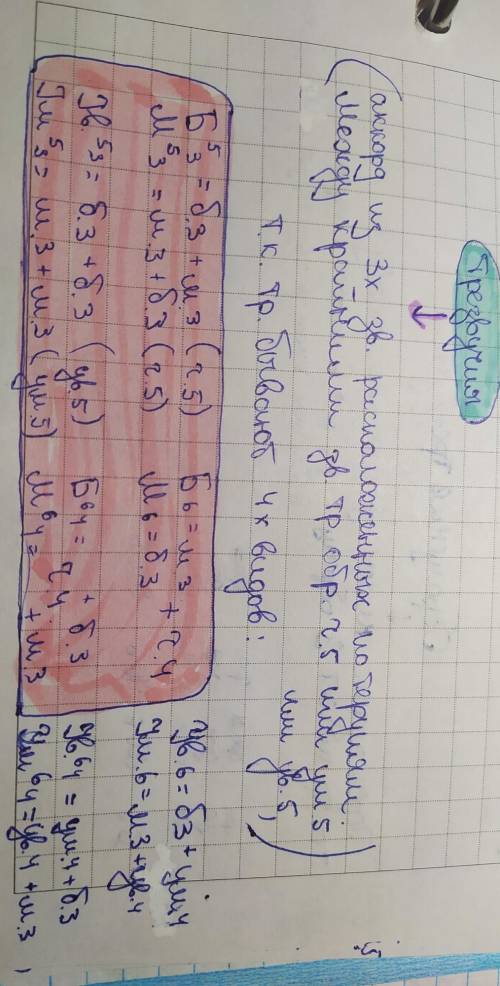 Трезвучия
(аккорд из 3х зв. расположенных по терциям.
Между крайними зв. тр. обр. ч.5 или ум5
или ув.5,)
т.к. тр. бывают 4х видов:
Б⁵₃ = б.3 + м.3 (ч.5) Б6 = м3 + ч.4 Ув.6 = б3 + ум4
М⁵₃ = м.3 + б.3 (ч.5) М6 = б.3 Ум.6 = м3 + ув.4
Ув.⁵₃ = б.3 + б.3 (ув.5) Б⁶₄ = ч.4 + б.3 Ув.⁶₄ = ум.4 + б.3
Ум⁵₃ = м.3 + м.3 (ум.5) М⁶₄ = + м.3 Ум⁶₄ = ув.4 + м.3